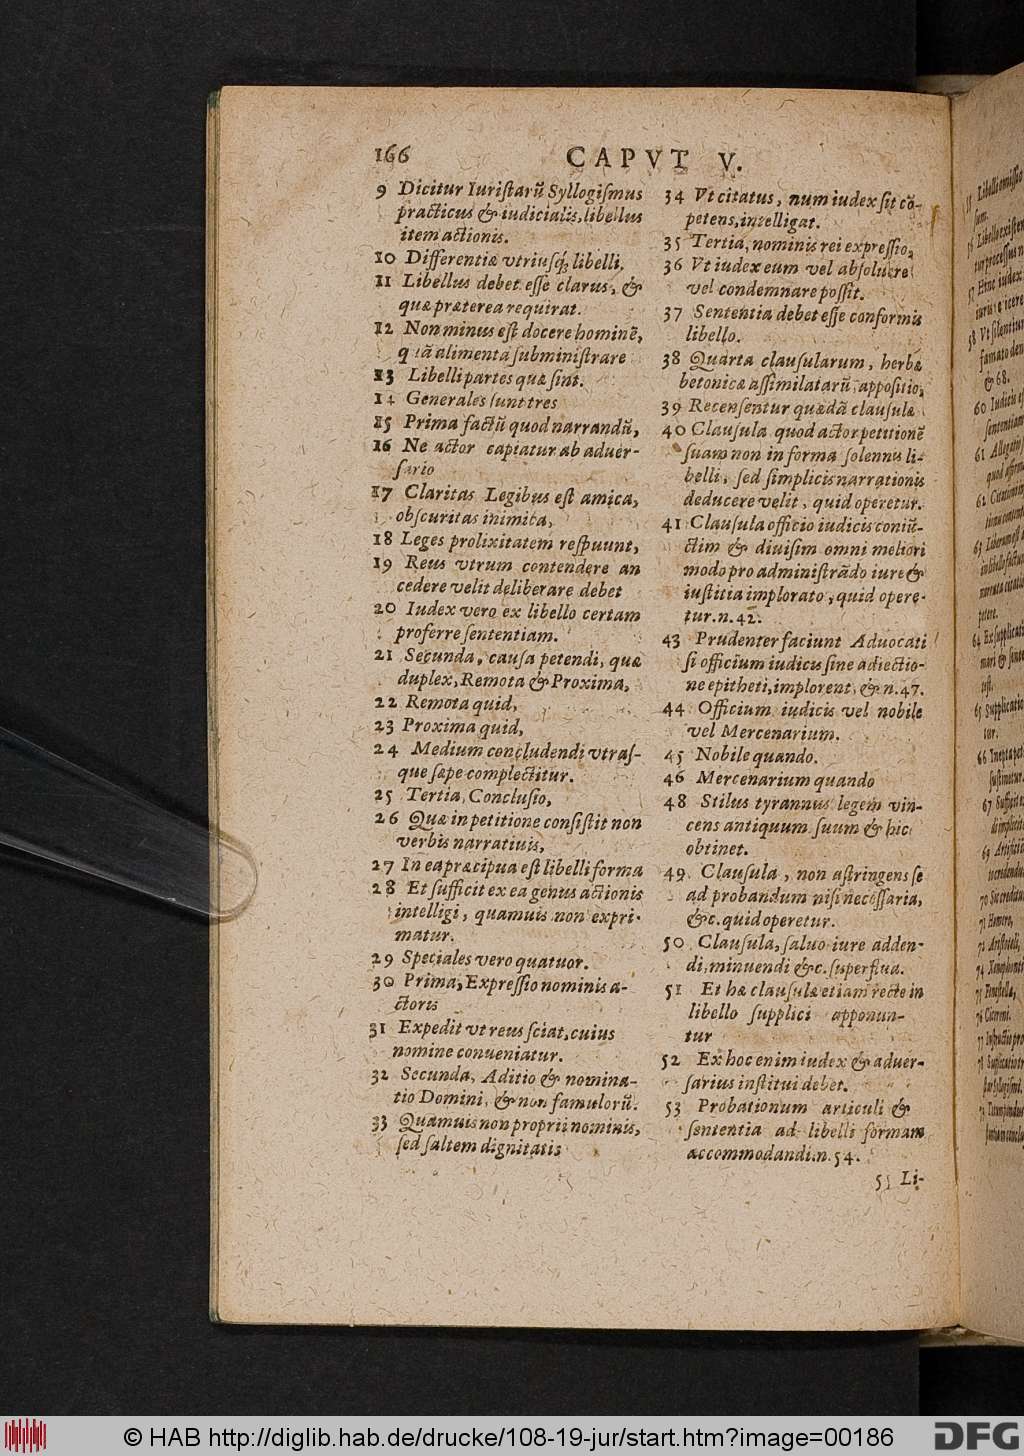 166
CAPVT V.
9 Dicitur Iuriſtarũ Syllogiſmus
practicus & iudicialis, libellus
item actionis.
10 Differentiæ vtriuſq́; libelli,
11 Libellus debet eſſe clarus, &
quæ præterea requirat.
12 Non minus eſt docere hominẽ,
quã alimenta ſubminiſtrare
13 Libelli partes quæ ſint.
14 Generales ſunt tres
15 Prima factũ quod narrandũ,
16 Ne actor capiatur ab aduer-
ſario
17 Claritas Legibus eſt amica,
obſcuritas inimica,
18 Leges prolixitatem reſpuunt,
19 Reus vtrum contendere an
cedere velit deliberare debet
20 Iudex vero ex libello certam
proferre ſententiam.
21 Secunda, cauſa petendi, quæ
duplex, Remota & Proxima,
22 Remota quid,
23 Proxima quid,
24 Medium concludendi vtraſ-
que ſæpe complectitur.
25 Tertia, Concluſio,
26 Quæ in petitione conſiſtit non
verbis narratiuis,
27 In ea præcipua eſt libelli forma
28 Et ſufficit ex ea genus actionis
intelligi, quamuis non expri-
matur.
29 Speciales vero quatuor.
30 Prima, Expreſſio nominis a-
ctoris
31 Expedit vt reus ſciat, cuius
nomine conueniatur.
32 Secunda, Aditio & nomina-
tio Domini, & non famulorũ.
33 Quamuis non proprii nominis,
ſed ſaltem dignitatis
34 Vt citatus, num iudex ſit cõ-
petens, intelligat.
35 Tertia, nominis rei expreſſio,
36 Vt iudex eum vel abſoluere
vel condemnare poſſit.
37 Sententia debet eſſe conformis
libello.
38 Quarta clauſularum, herbæ
betonicæ aſſimilatarũ, appoſitio,
39 Recenſentur quædã clauſulæ
40 Clauſula quod actor petitionẽ
ſuam non in forma ſolennis li-
belli, ſed ſimplicis narrationis
deducere velit, quid operetur.
41 Clauſula officio iudicis coniũ-
ctim & diuiſim omni meliori
modo pro adminiſtrãdo iure &
iuſtitia implorato, quid opere-
tur. n. 42.
43 Prudenter faciunt Aduocati
ſi officium iudicis ſine adiectio-
ne epitheti, implorent, & n. 47.
44 Officium iudicis vel nobile
vel Mercenarium.
45 Nobile quando.
46 Mercenarium quando
48 Stilus tyrannus legem vin-
cens antiquum ſuum & hic
obtinet.
49 Clauſula, non aſtringens ſe
ad probandum niſi neceſſaria,
&c. quid operetur.
50 Clauſula, ſaluo iure adden-
di, minuendi &c. ſuperflua.
51 Et hæ clauſulæ etiam recte in
libello ſupplici apponun-
tur
52 Ex hoc enim iudex & aduer-
ſarius inſtitui debet.
53 Probationum articuli &
ſententia ad libelli formam
accommodandi. n. 54.
55 Li-
© HAB http://diglib.hab.de/drucke/108-19-jur/start.htm?image=00186
DFG